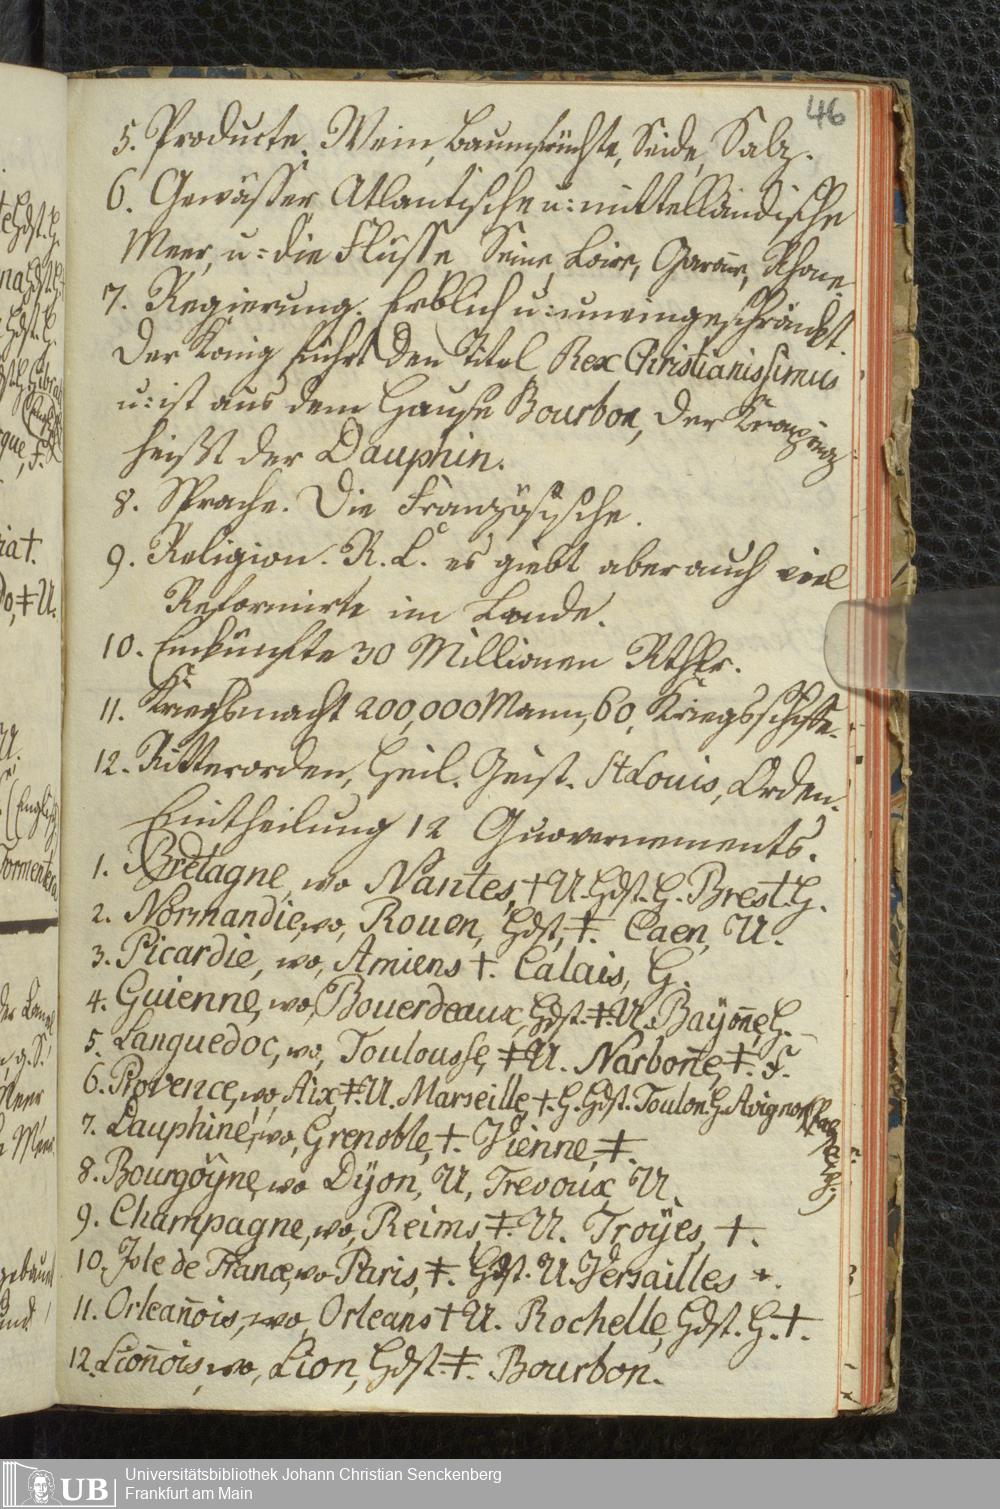 46
5. Producte. Wein, Baumfrüchte, Seide, Salz.
6. Gewässer Atlantische u: mittelländische
Meer, u: die Flüsse Seine, Loire, Garoñe, Rhone.
7. Regierung. Erblich u: uneingeschränckt.
Der König führt den Titel Rex Christianissimus
u: ist aus dem Hause Bourbon, der Kronprinz
heißt der Dauphin.
8. Sprache. Die Französische.
9. Religion. R. C. es giebt aber auch viel
Reformirte im Lande.
10. Einkünfte 30 Millionen Rthlr.
11. Kriegsmacht 200,000 Mann, 60, Kriegsschiffe.
12. Ritterorden, Heil. Geist. St Louis, Orden.
Eintheilung 12 Guovernements.
1. Bretagne, wo Nantes, † U. Hdst. H. Brest H.
2. Normandie, wo, Rouen, Hdst, ‡. Caen, U.
3. Picardie, wo, Amiens †. Calais, H.
4. Guienne, wo, Bouerdeaux, Hdst. ‡. U. Baÿoñe, H.
5. Languedoc, wo, Toulousse, ‡ U. Narboñe, ‡. F.
6. Provence, wo, Aix ‡. U. Marseille, †. H. Hdst. Toulon. H. Avignon
7. Dauphine, wo, Grenoble, †. Vienne, ‡.
8. Bourgöÿne, wo Dÿon, U, Trevoux, U.
9. Champagne, wo, Reims, ‡. U. Troÿes, †.
10. Isle de France, wo Paris, ‡. Hdst. U. Versailles *.
11. Orleañois, wo, Orleans † U. Rochelle, Hdst. H. †.
12. Lioñois, wo, Lion, Hdst. ‡. Bourbon.
UB
Universitätsbibliothek Johann Christian Senckenberg
Frankfurt am Main